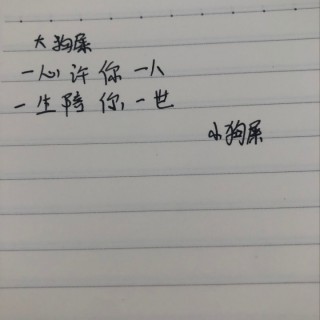 大狗屎
一心许你一人
一生陪你一世
小狗屎